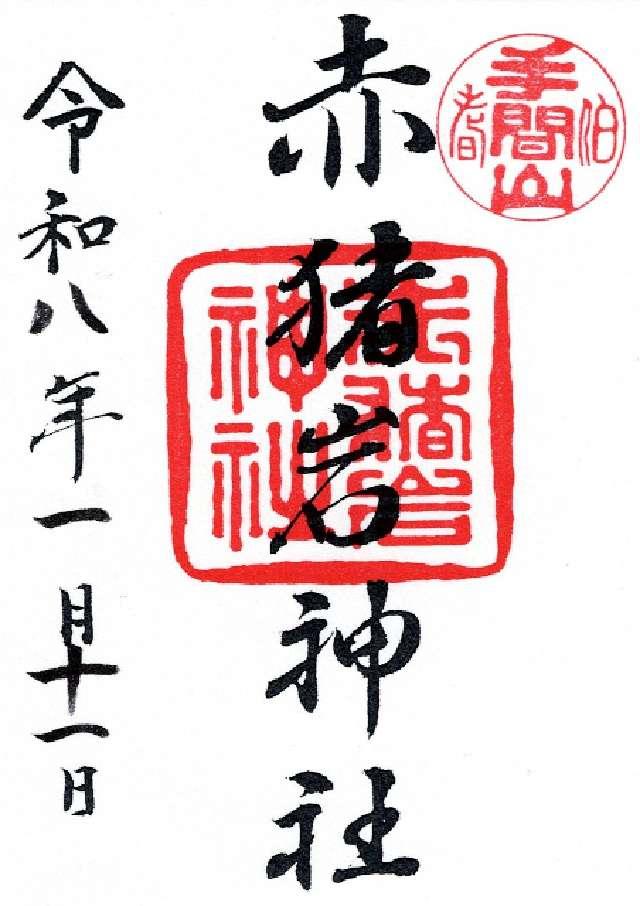 伯耆
手間山
赤猪岩神社
神社
令和八年一月十一日